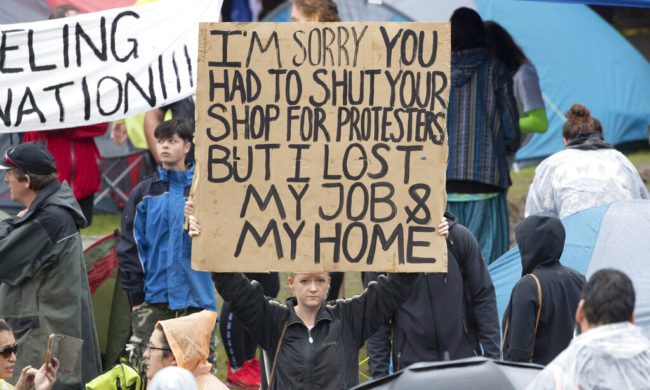 ELING
NATION!!!
I'M SORRY YOU
HAD TO SHUT YOUR
SHOP FOR PROTESTERS
BUT I LOST
MY JOB &
MY HOME